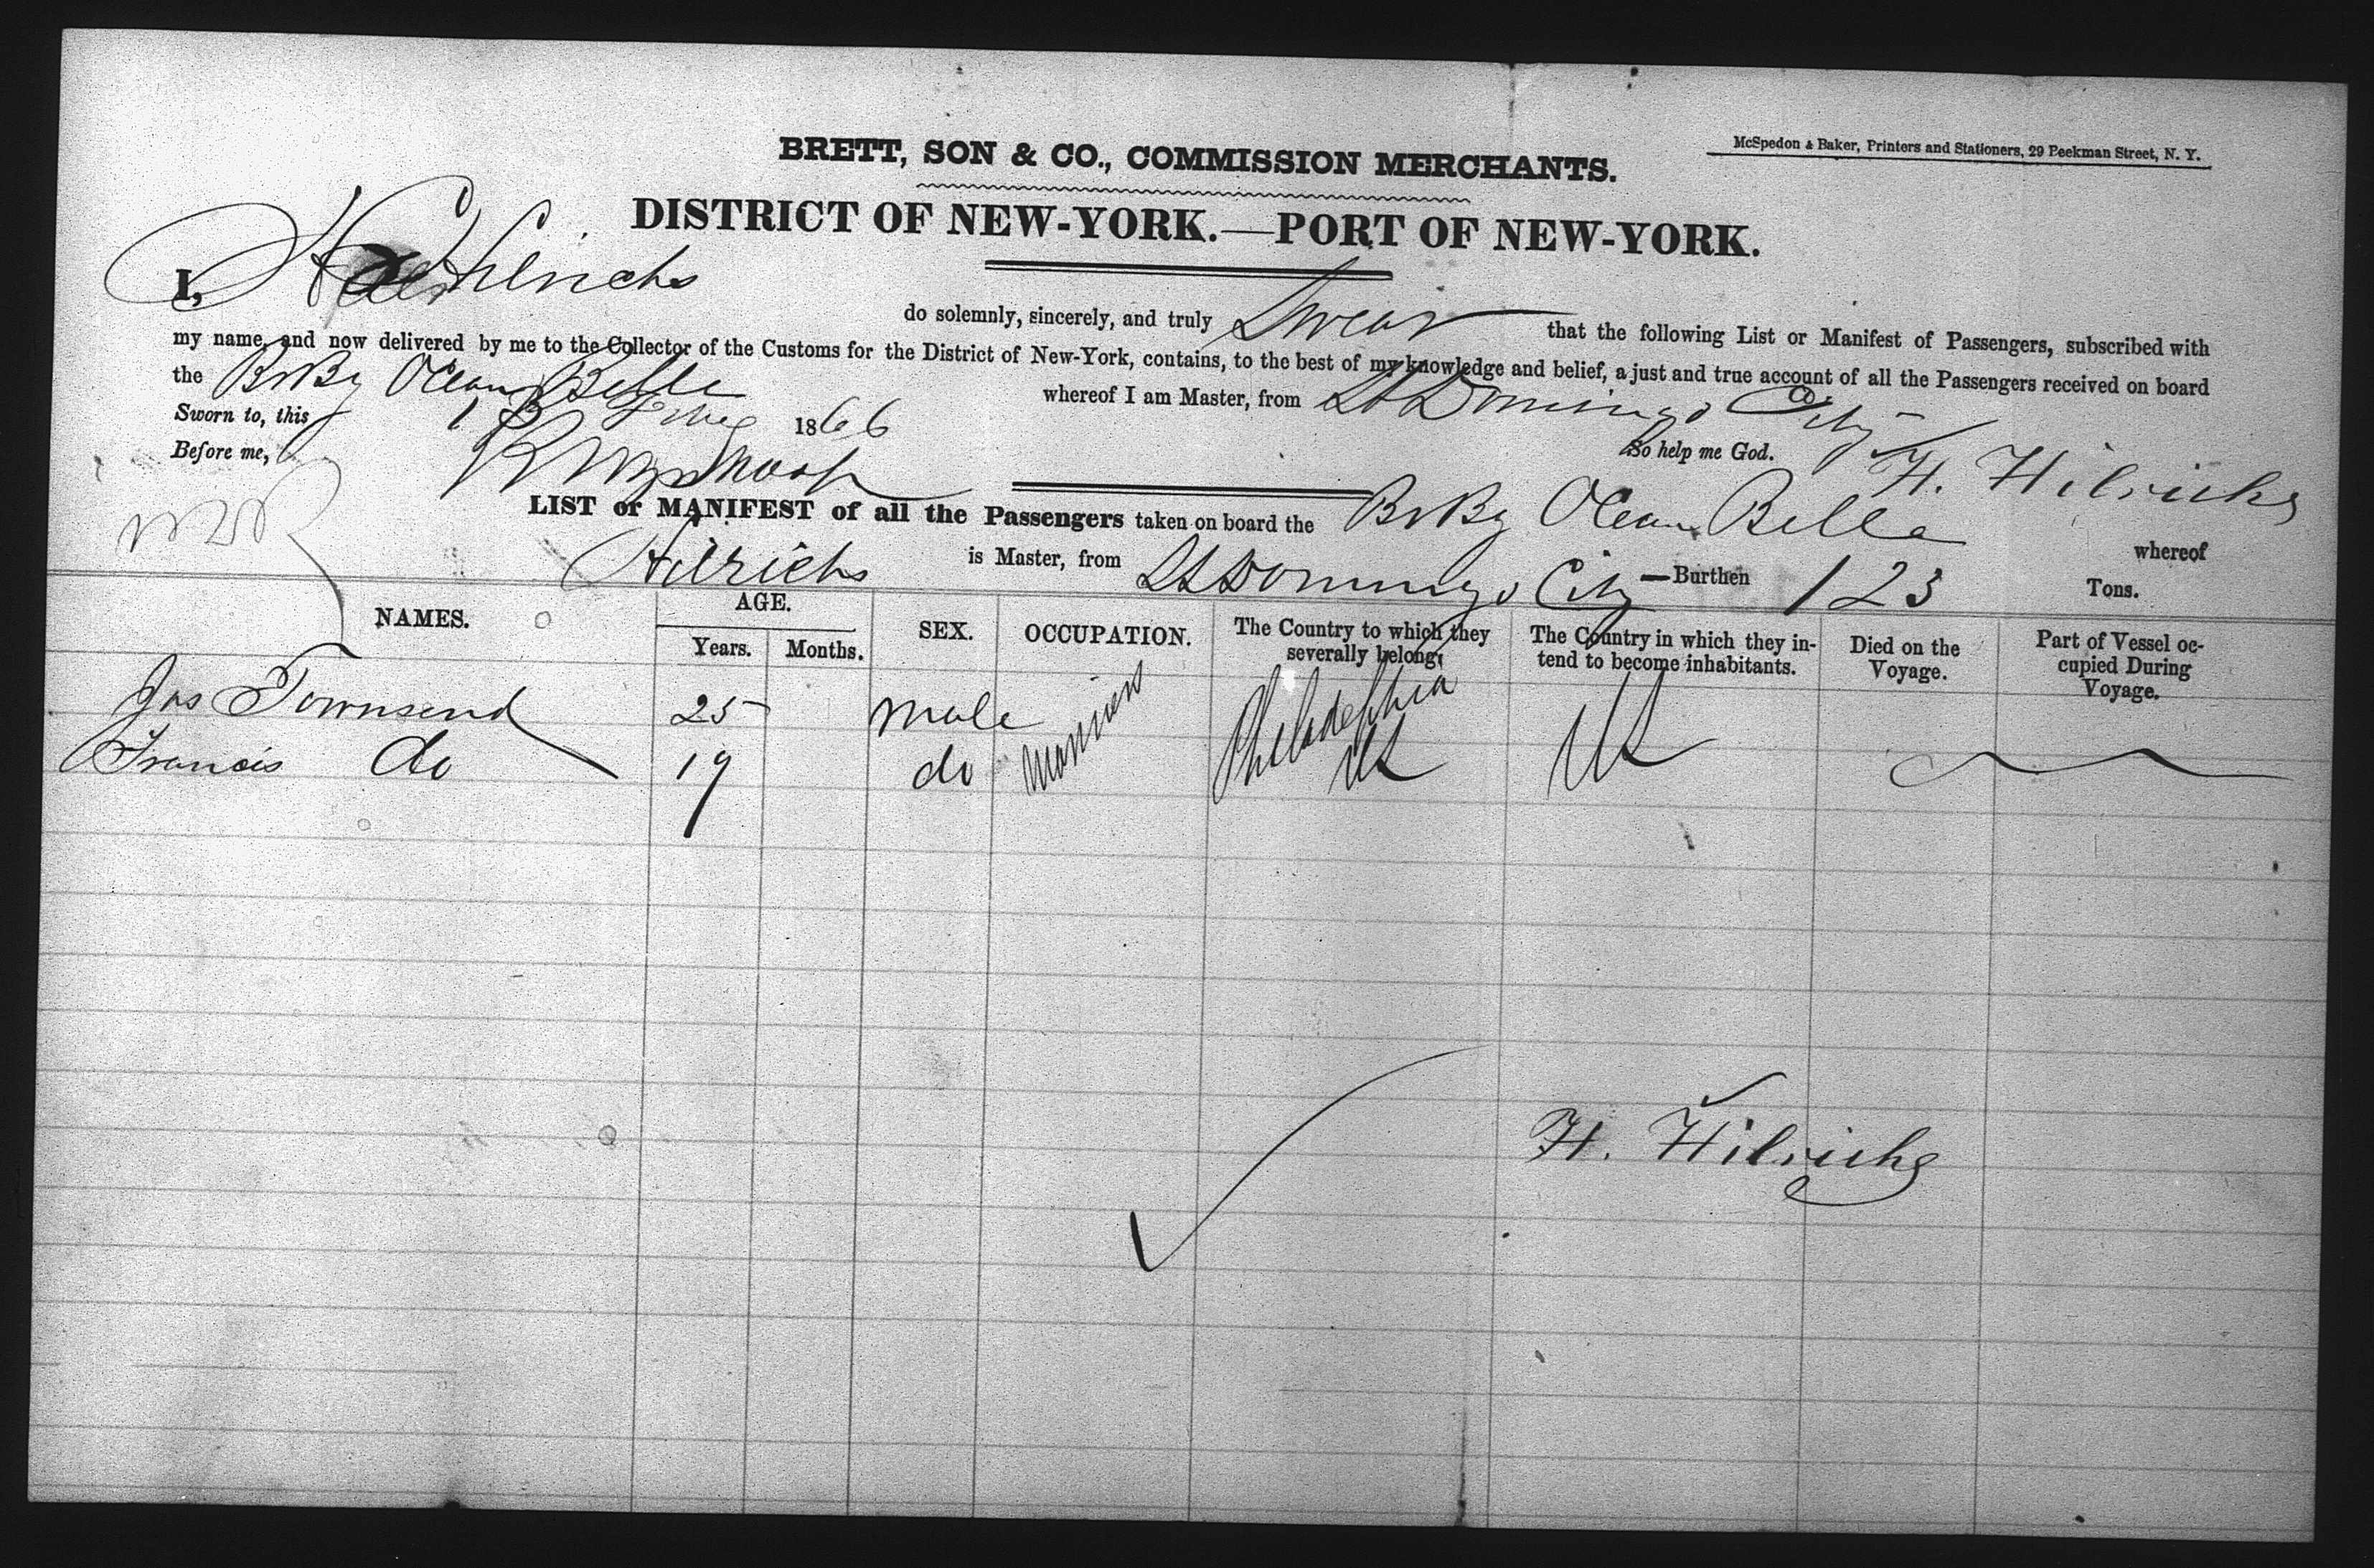 BRETT, SON & CO., COMMISSION MERCHANTS.
McSpedon & Baker, Printers and Stationers, 29 Beekman Street, N. Y.
DISTRICT OF NEW-YORK.—PORT OF NEW-YORK.
I, H Hilrichs do solemnly, sincerely, and truly Swear that the following List or Manifest of Passengers, subscribed with
my name, and now delivered by me to the Collector of the Customs for the District of New-York, contains, to the best of my knowledge and belief, a just and true account of all the Passengers received on board
the Br Bg Ocean Belle whereof I am Master, from St Domingo City
Sworn to, this 13 1866 So help me God.
Before me, H. Hilrichs
LIST or MANIFEST of all the Passengers taken on board the Br Bg Ocean Belle whereof
Hilrichs is Master, from St Domingo City —Burthen 123 Tons.
NAMES. AGE. SEX. OCCUPATION. The Country to which they severally belong. The Country in which they intend to become inhabitants. Died on the Voyage. Part of Vessel occupied During Voyage.
Years. Months.
Jas Townsend 25 male Mariners Philadelphia US US
Francis do 19 do
H. Hilrichs